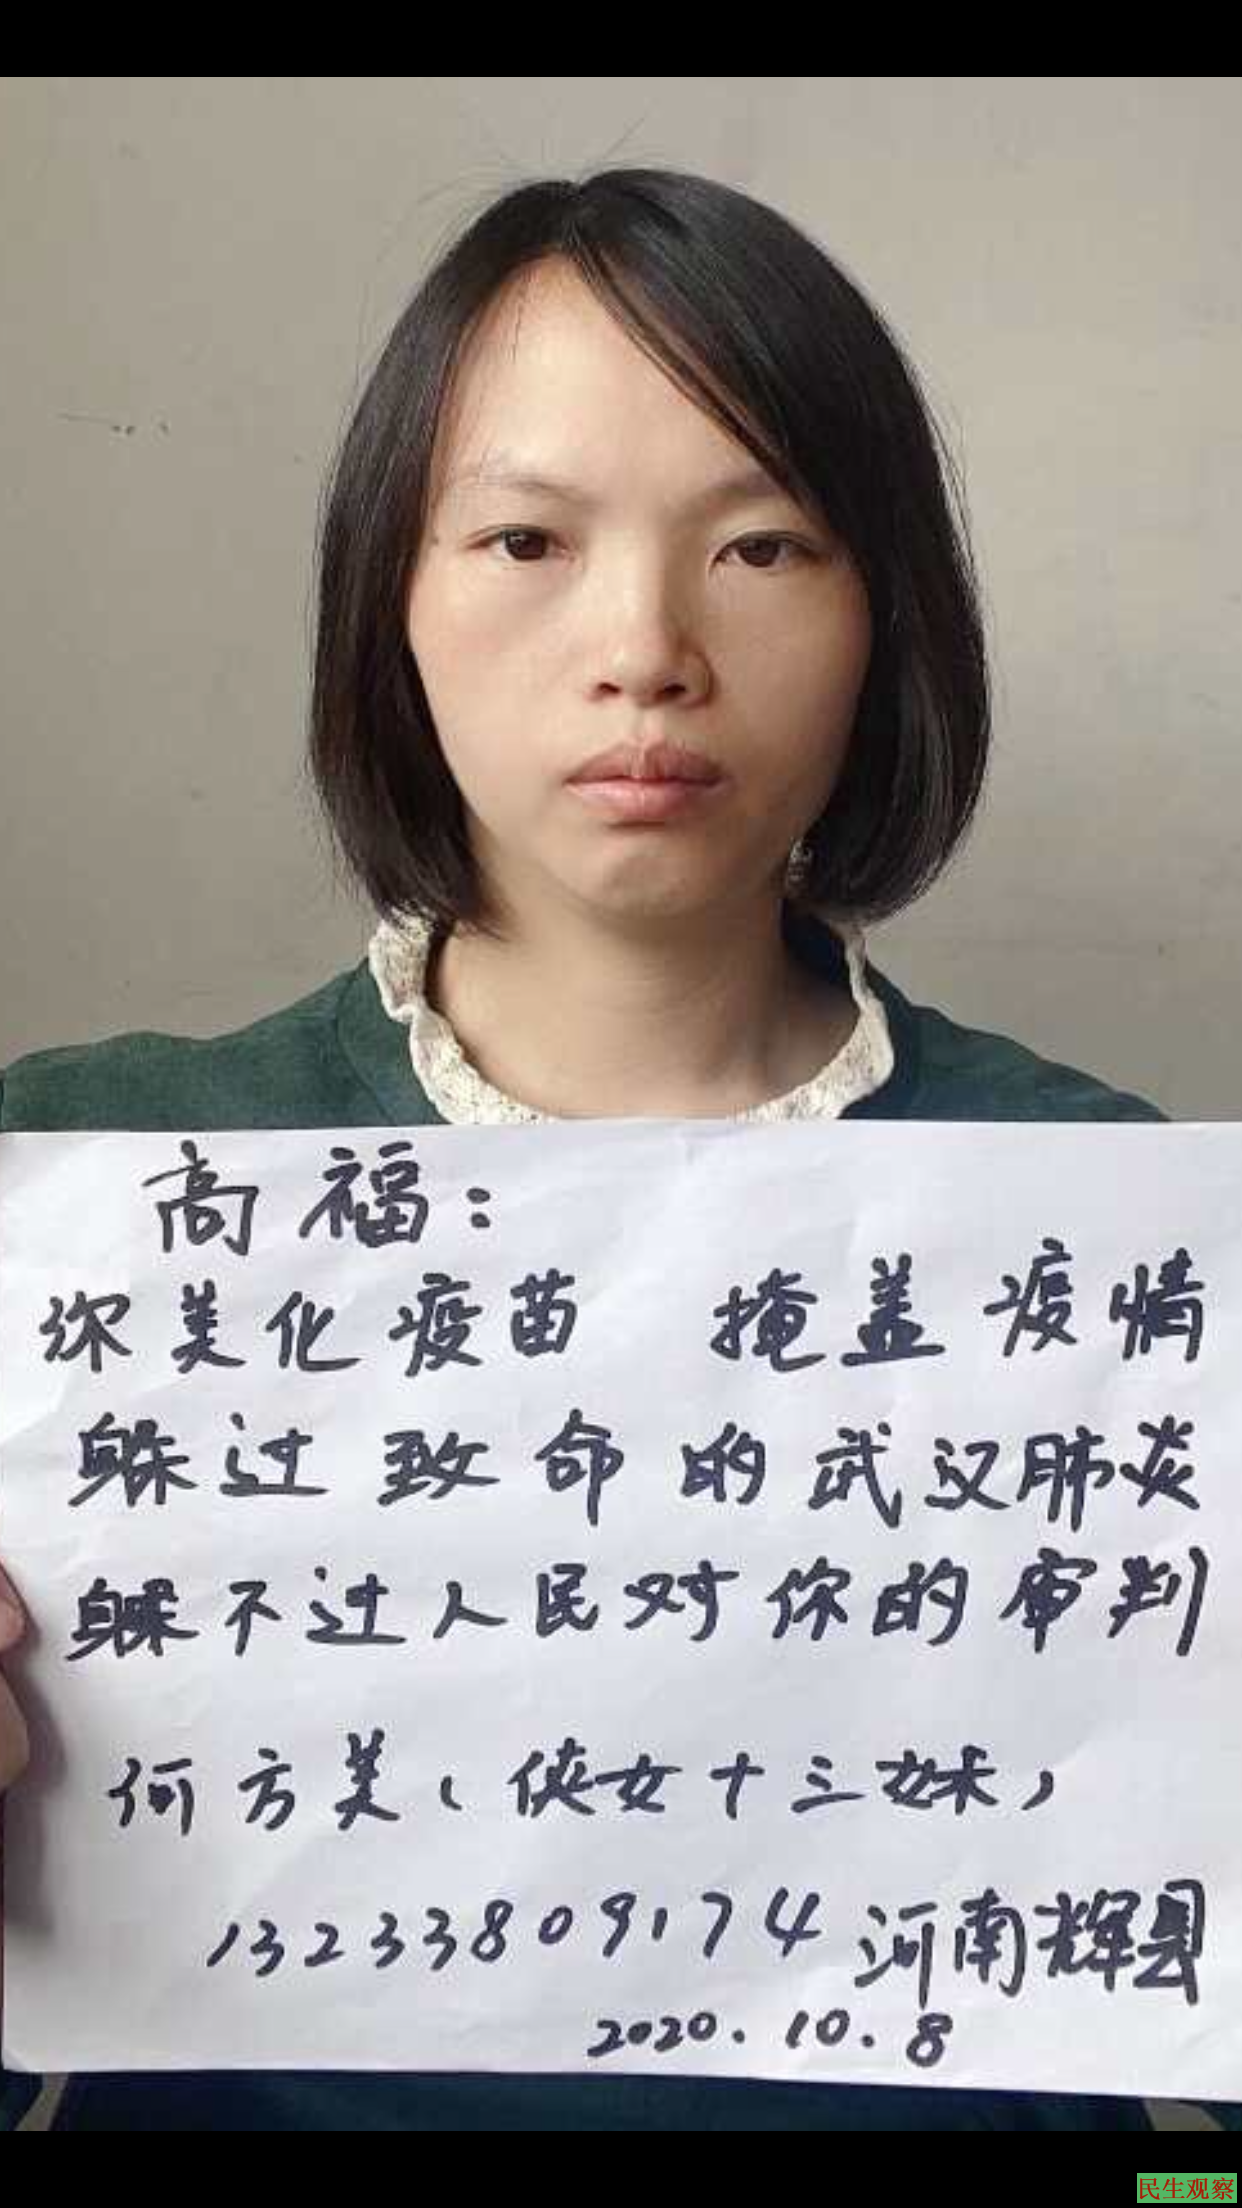 高福：
你美化疫苗 掩盖疫情
躲过致命的武汉肺炎
躲不过人民对你的审判
何方美（侠女十三妹）
13233809174 河南辉县
2020.10.8
民生观察